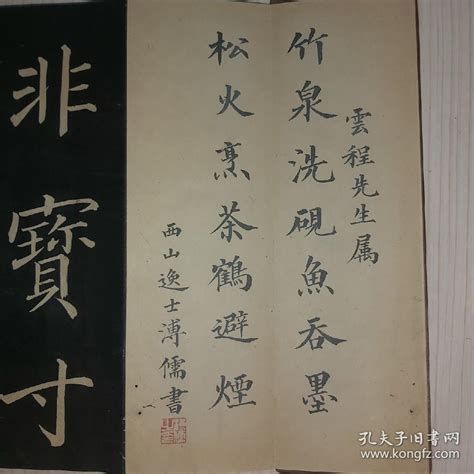 竹泉洗硯魚吞墨
雲程先生属
松火烹茶鶴避煙
西山逸士溥儒書
非寶寸
孔夫子旧书网
www.kongfz.com